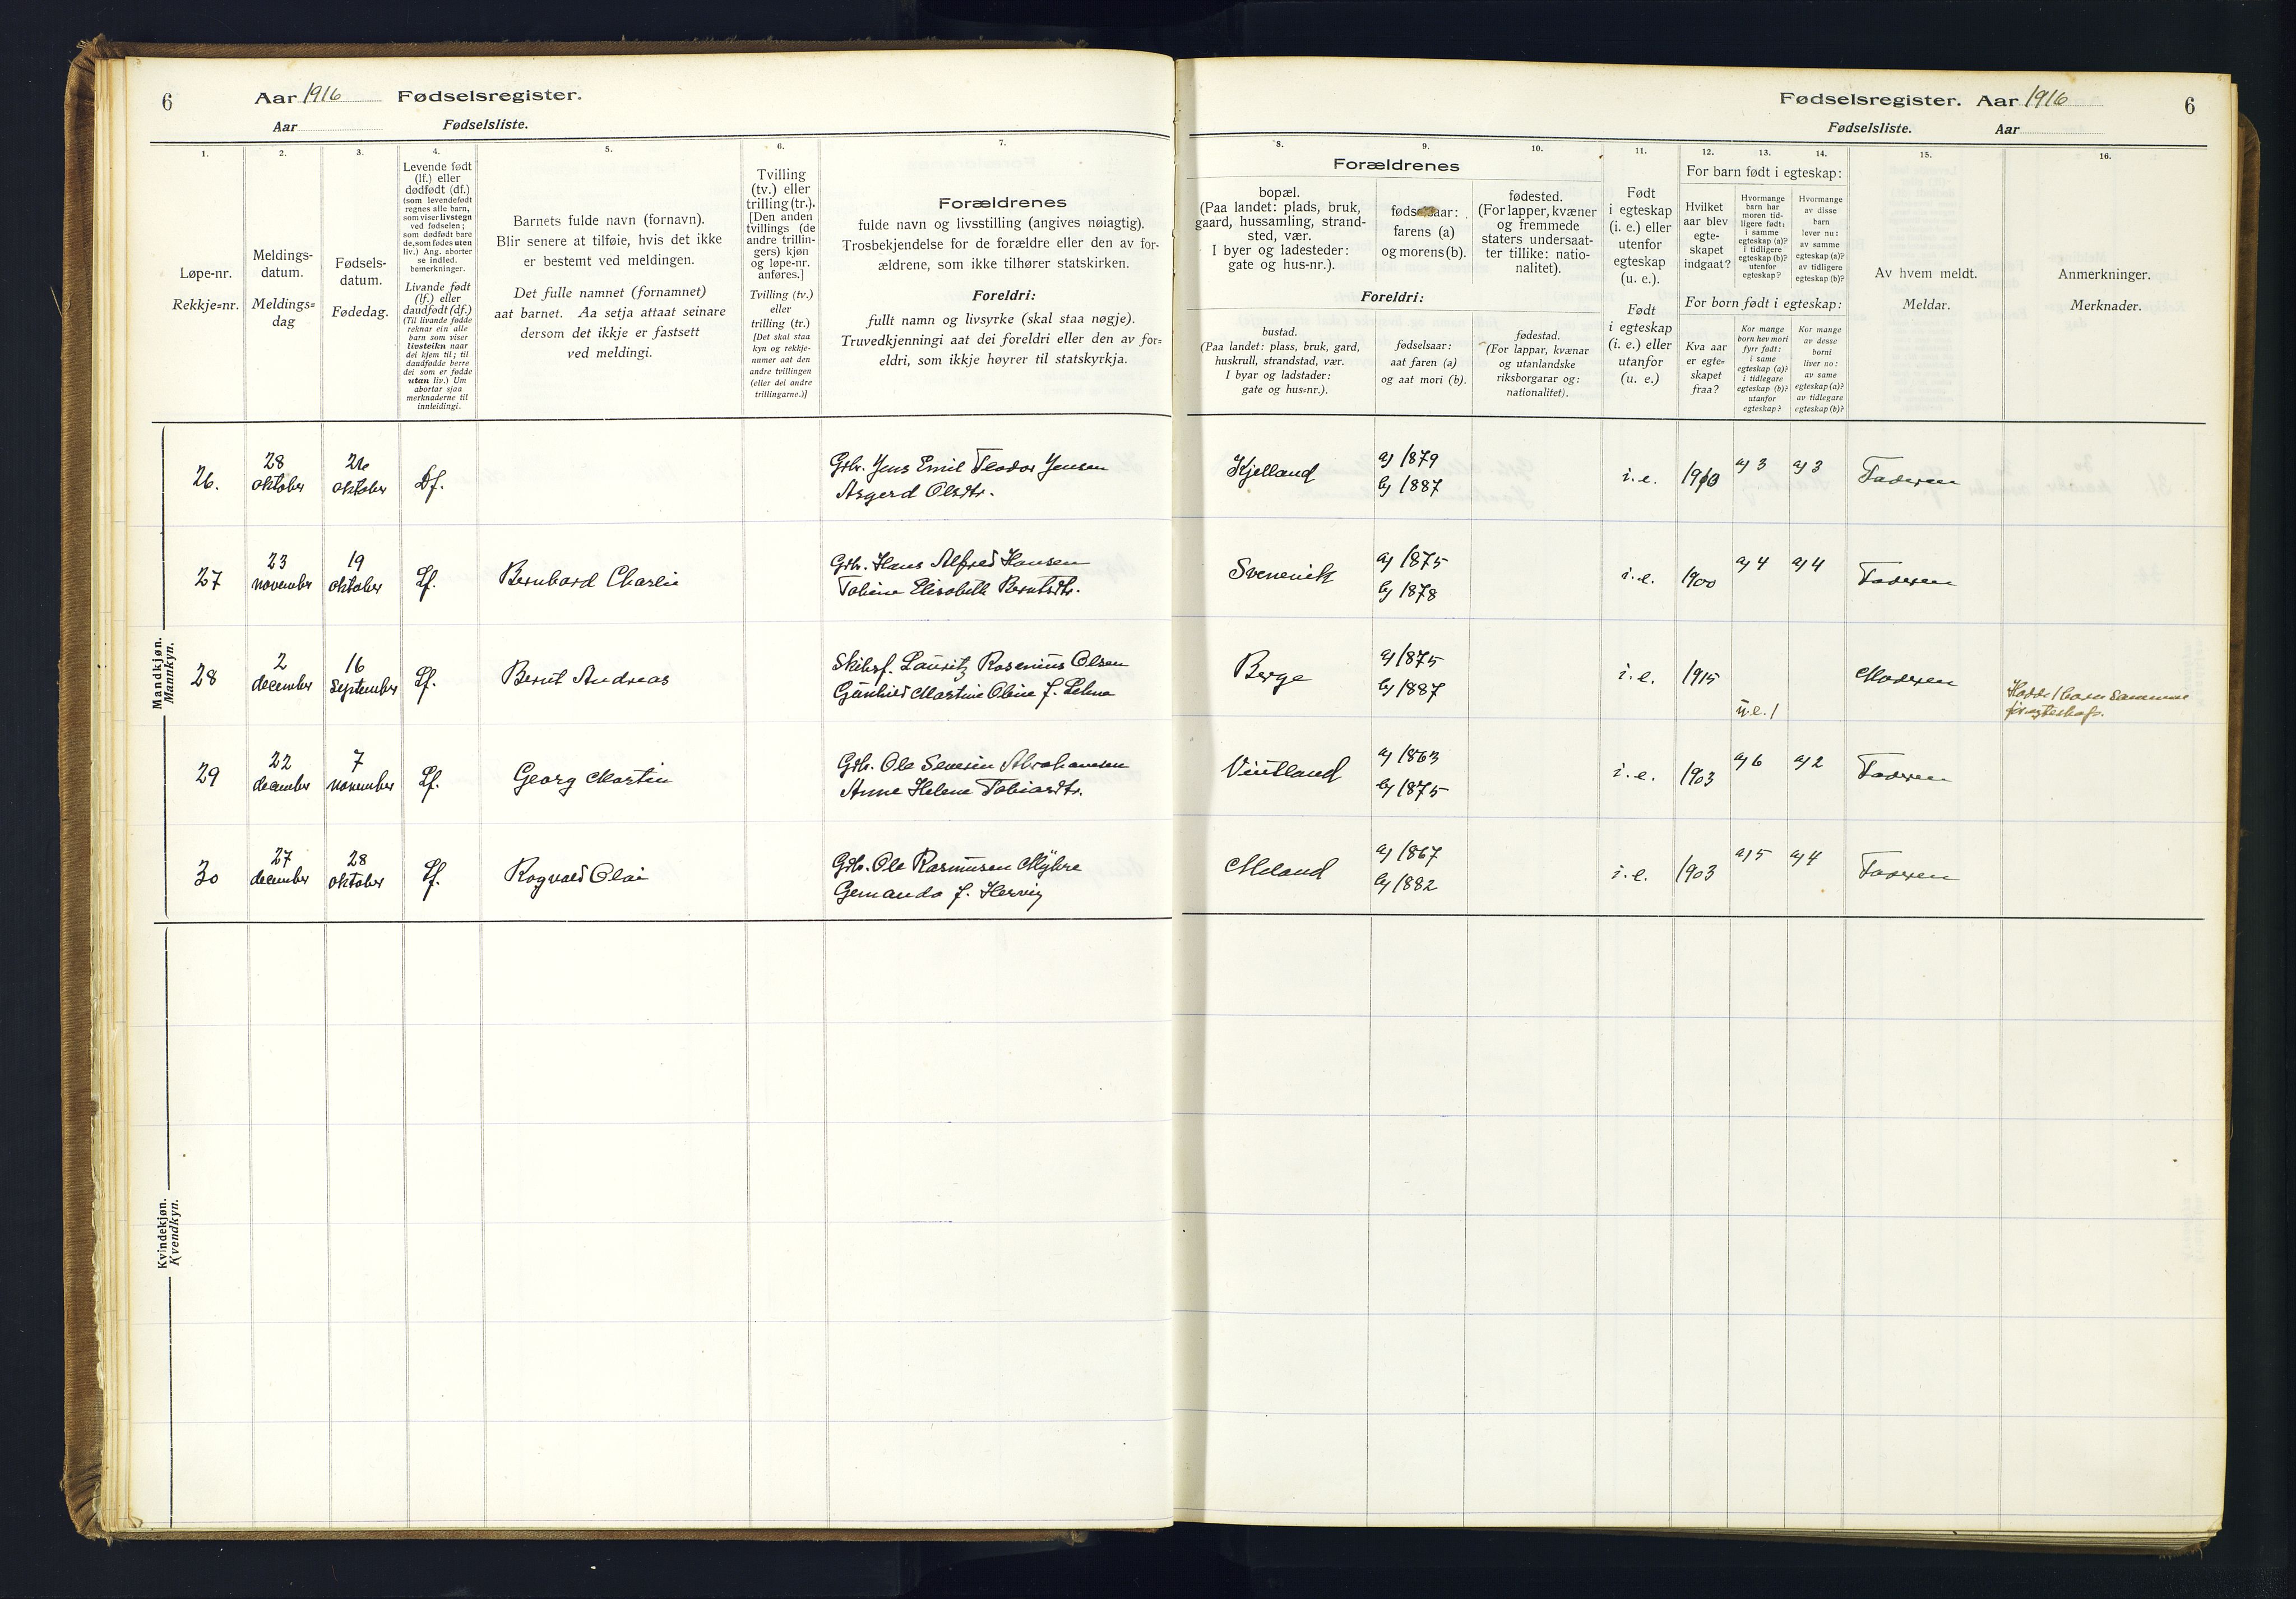 6
Aar 1916 Fødselsregister.
Aar Fødselsliste.
1. 2. 3. 4. 5. 6. 7.
Løpe-nr.
Rekkje=nr.
Meldings-
datum.
Meldings=
dag
Fødsels-
datum.
Fødedag.
Levende født
(lf.) eller
dødfødt (df.)
(som levendefødt
regnes alle barn,
som viser livstegn
ved fødselen;
som dødfødt bare
de, som fødes uten
liv.) Ang. aborter
se indled.
bemerkninger.
Livande født
(lf.) eller
daudfødt (df.)
(Til livande fødde
reknar ein alle
barn som viser
livsteikn naar
dei kjem til; til
daudfødde berre
dei som er fødde
utan liv.) Um
abortar sjaa
merknaderne til
innleidingi.
Barnets fulde navn (fornavn).
Blir senere at tilføie, hvis det ikke
er bestemt ved meldingen.
Det fulle namnet (fornamnet)
aat barnet. Aa setja attaat seinare
dersom det ikkje er fastsett
ved meldingi.
Tvilling
(tv.) eller
trilling (tr.).
[Den anden
tvillings (de
andre trillin-
gers) kjøn
og løpe-nr.
anføres.]
Tvilling (tv.)
eller
trilling (tr.)
[Det skal staa
kyn og rekkje-
numer aat den
andre tvillingen
(eller dei andre
trillingarne.)]
Forældrenes
fulde navn og livsstilling (angives nøiagtig).
Trosbekjendelse for de forældre eller den av for-
ældrene, som ikke tilhører statskirken.
Foreldri:
fullt namn og livsyrke (skal staa nøgje).
Truvedkjenningi aat dei foreldri eller den av for=
eldri, som ikkje høyrer til statskyrkja.
Mandkjøn.
Mannkyn.
26. 28 oktober 26 oktober Df. Grbr. Jens Emil Teodor Jensen
Asgerd Olsdtr.
27 23 november 19 oktober Lf. Bernhard Charlie Grbr. Hans Alfred Hansen
Tobine Elisabeth Berntsdtr.
28 2 december 16 september Lf. Bernt Andreas Skibsf. Lauritz Rosenius Olsen
Gunhild Martine Oline f. Lehne
29 22 december 7 november Lf. Georg Martin Grbr. Ole Severin Abrahamsen
Anne Helene Tobiasdtr.
30 27 december 28 oktober Lf. Ragvald Olai Grbr. Ole Rasmusen Myhre
Gemanda f. Hervig
Kvindekjøn.
Kvendkyn.
Fødselsregister. Aar 1916
6
Fødselsliste. Aar
8. 9. 10. 11. 12. 13. 14. 15. 16.
Forældrenes
bopæl.
(Paa landet: plads, bruk,
gaard, hussamling, strand-
sted, vær.
I byer og ladesteder:
gate og hus-nr.).
fødselsaar:
farens (a)
og morens (b).
fødested.
(For lapper, kvæner
og fremmede
staters undersaat-
ter tillike: natio-
nalitet).
Foreldri:
bustad.
(Paa landet: plass, bruk, gard,
huskrull, strandstad, vær.
I byar og ladstader:
gate og hus=nr.).
fødselsaar:
aat faren (a)
og aat mori (b).
fødestad.
(For lappar, kvænar
og utanlandske
riksborgarar og:
nationalitet).
Født
i egteskap
(i. e.) eller
utenfor
egteskap
(u. e.).
Født
i egteskap
(i. e.) eller
utanfor
(u. e.)
For barn født i egteskap:
Hvilket
aar blev
egte-
skapet
indgaat?
Hvormange
barn har
moren tid-
ligere født:
i samme
egteskap (a)?
i tidligere
egteskap (b)?
utenfor
egteskap?
Hvormange
av disse
barn
lever nu:
av samme
egteskap (a)?
av tidligere
egteskap (b)?
For born født i egteskap:
Kva aar
er egte=
skapet
fraa?
Kor mange
born hev mori
fyrr født:
i same
egteskap (a)?
i tidlegare
egteskap (b)?
utanfor
egteskap?
Kor mange
av desse
borni
liver no:
av same
egteskap (a)?
av tidlegare
egteskap (b)?
Av hvem meldt.
Meldar.
Anmerkninger.
Merknader.
Kjelland a) 1879 b) 1887 i. e. 1910 a) 3 a) 3 Faderen
Svenevik a) 1875 b) 1878 i. e. 1900 a) 4 a) 4 Faderen
Berge a) 1875 b) 1887 i. e. 1915 u.e. 1 Moderen Hadde 1 barn sammen
før egteskab.
Vintland a) 1863 b) 1875 i. e. 1903 a) 6 a) 2 Faderen
Meland a) 1867 b) 1882 i. e. 1903 a) 5 a) 4 Faderen